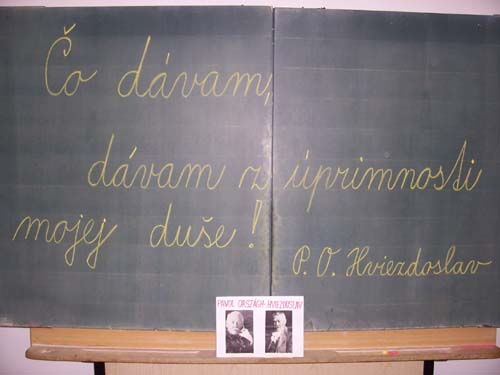 Čo dávam,
dávam z úprimnosti
mojej duše!
P. O. Hviezdoslav
PAVOL ORSZÁGH HVIEZDOSLAV